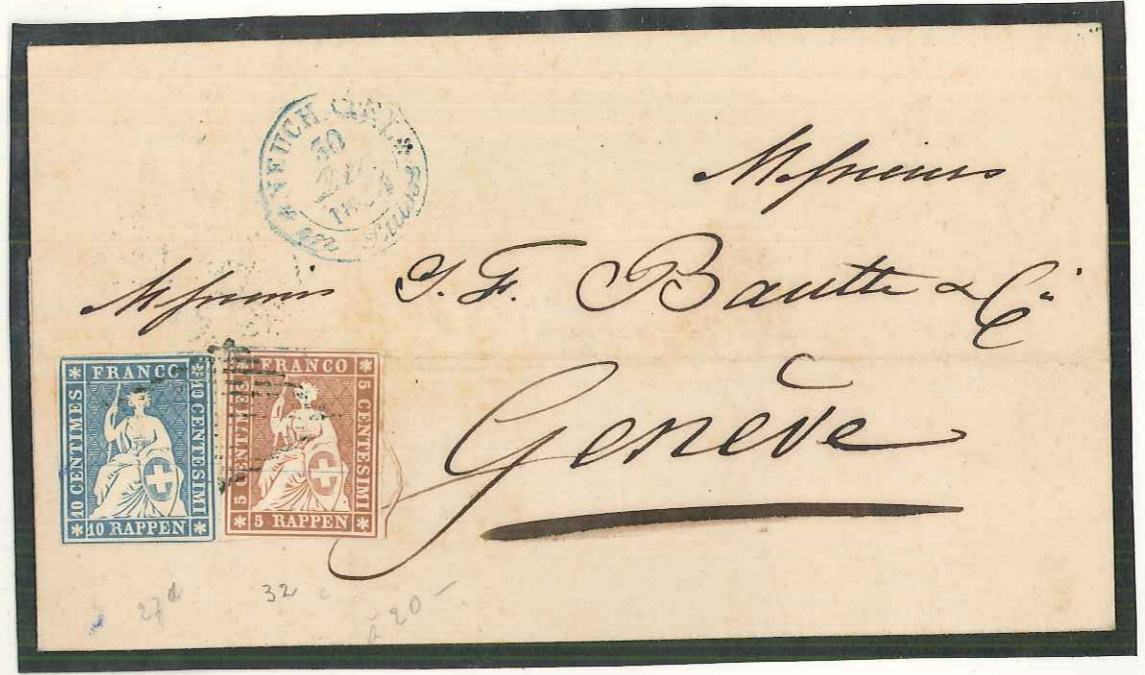 NEUCHATEL
30
Messieurs
Messieurs J. F. Bautte & Cie
Genève
FRANCO
10 CENTIMES
10 CENTESIMI
10 RAPPEN
FRANCO
5 CENTIMES
5 CENTESIMI
5 RAPPEN
27d
32 c
à 20 -